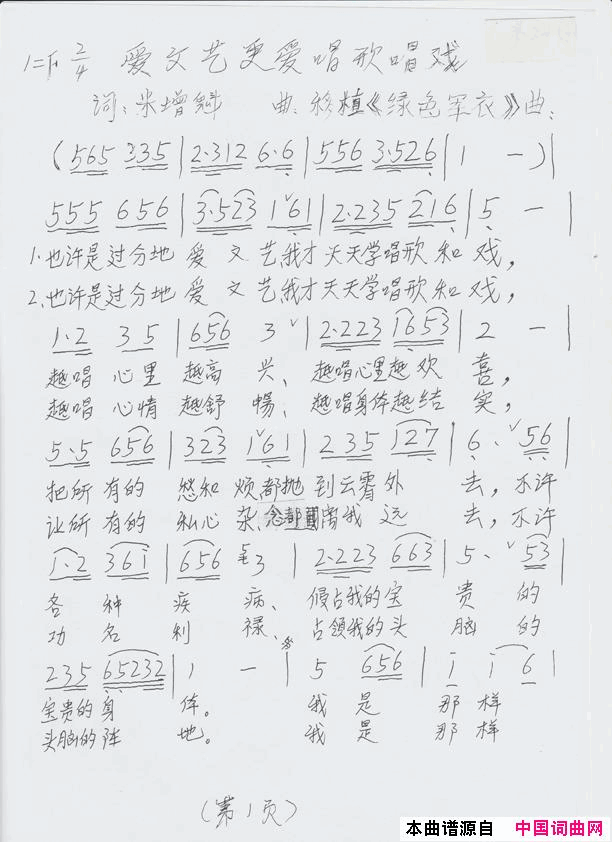 1=F 2/4 爱文艺更爱唱歌唱戏
词:米增魁 曲:移植《绿色军衣》曲:
(565 335|2·312 6·6|556 3·526|1 —)|
555 656|3·523 1ˇ61|2·235 216|5 —|
1.也许是过分地爱文艺,我才天天学唱歌和戏,
2.也许是过分地爱文艺,我才天天学唱歌和戏,
1·2 35|656 3ˇ|2·223 1653|2 —|
越唱心里越高兴、越唱心里越欢喜,
越唱心情越舒暢、越唱身体越结实,
5·5 656|323 1ˇ61|235 127|6·ˇ56|
把所有的愁和烦都抛到云霄外去,不许
让所有的私心杂念都離我远去,不许
1·2 361|656 53|2·223 663|5·ˇ53|
各种疾病、侵占我的宝贵的
功名利禄、占领我的头脑的
235 65232|1 —|5 656|i i6|
宝贵的身体。我是那样
头脑的阵地。我是那样
(第1页)
本曲谱源自 中国词曲网